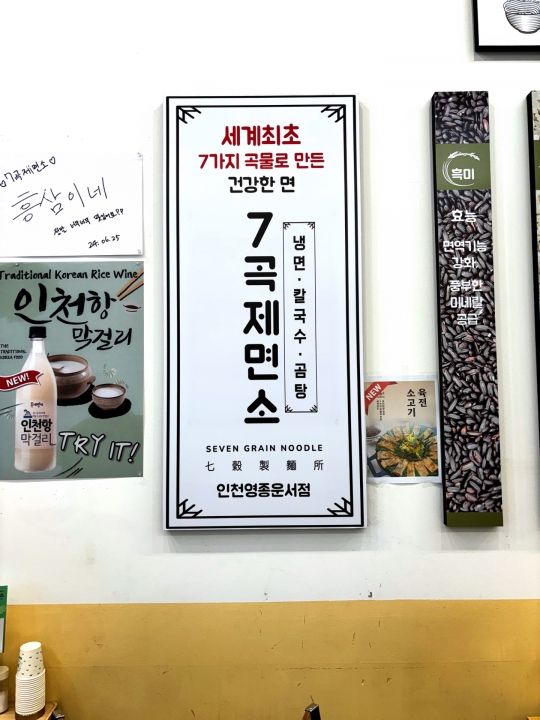 ♡7곡제면소♡
흥삼이네
24.06.25
Traditional Korean Rice Wine
인천항
막걸리
THE
TRADITIONAL
KOREA FOOD
NEW!
인천항
막걸리
TRY IT!
세계최초
7가지 곡물로 만든
건강한 면
7곡제면소
냉면·칼국수·곰탕
SEVEN GRAIN NOODLE
七穀製麵所
인천영종운서점
NEW
육전
소고기
흑미
효능
면역기능
강화
풍부한
미네랄
공급